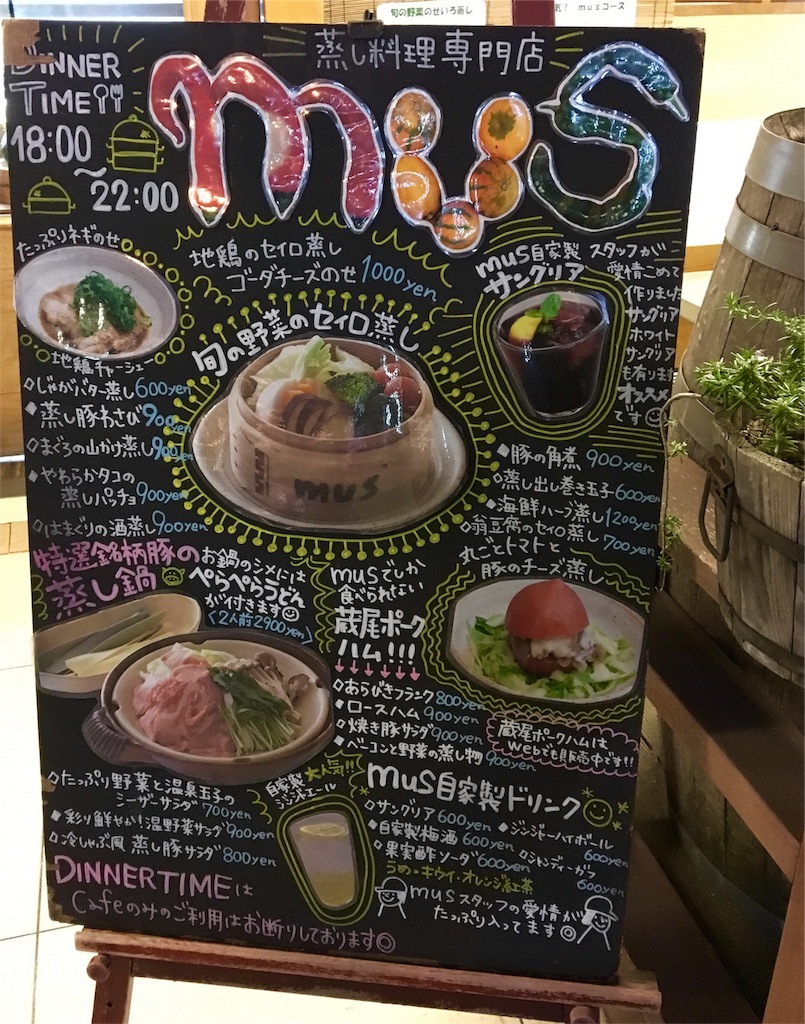 旬の野菜のせいろ蒸し
musコース
DINNER
TIME
18:00
～
22:00
蒸し料理専門店
mus
たっぷりネギのせ
地鶏チャーシュー
地鶏のセイロ蒸し
ゴーダチーズのせ 1000yen
旬の野菜のセイロ蒸し
mus
mus自家製
サングリア
スタッフが
愛情こめて
作りました
サングリア
ホワイト
サングリア
も有ります
オススメ
です
じゃがバター蒸し 600yen
蒸し豚わさび 900yen
まぐろの山かけ蒸し 900yen
やわらかタコの
蒸しパッチョ 900yen
はまぐりの酒蒸し 900yen
豚の角煮 900yen
蒸し出し巻き玉子 600yen
海鮮ハーブ蒸し 1200yen
翁豆腐のセイロ蒸し 700yen
特選銘柄豚の
蒸し鍋
お鍋のシメには
ぺらぺらうどん
が付きます
〈2人前2900yen〉
musでしか
食べられない
蔵尾ポーク
ハム!!!
あらびきフランク 800yen
ロースハム 900yen
焼き豚サラダ 900yen
ベーコンと野菜の蒸し物 900yen
丸ごとトマトと
豚のチーズ蒸し
蔵尾ポークハムは
webでも販売中です!!
たっぷり野菜と温泉玉子の
シーザーサラダ 700yen
彩り鮮やか!温野菜サラダ 900yen
冷しゃぶ風 蒸し豚サラダ 800yen
自家製 大人気!!
ジンジャエール
mus自家製ドリンク
サングリア 600yen
自家製梅酒 600yen
果実酢ソーダ 600yen
うめ・キウイ・オレンジ紅茶
ジンジャーハイボール
600yen
シャンディーガフ
600yen
DINNERTIMEは
Cafeのみのご利用はお断りしております
musスタッフの愛情が
たっぷり入ってます